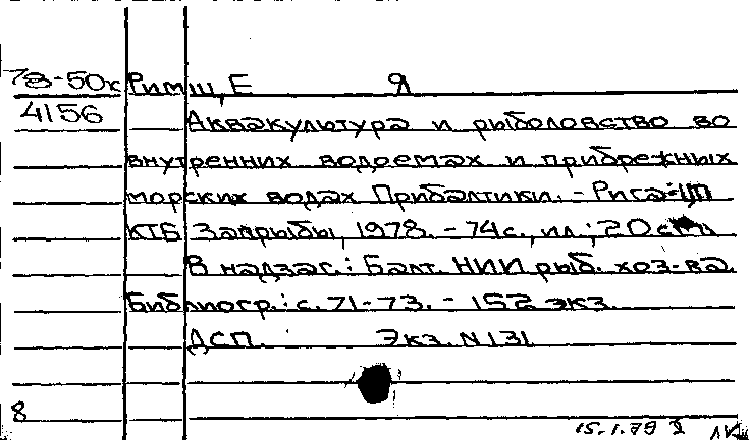 78-50к Римш, Е Я
4156
Аквакультура и рыболовство во
внутренних водоемах и прибрежных
морских водах Прибалтики. - Рига:
КТБ Запрыбы, 1978. - 74с., ил; 20см.
В надзаг.: Балт. НИИ рыб. хоз-ва.
Библиогр.: с. 71-73. - 152 экз.
ДСП. Экз. N 131
8
15.1.79